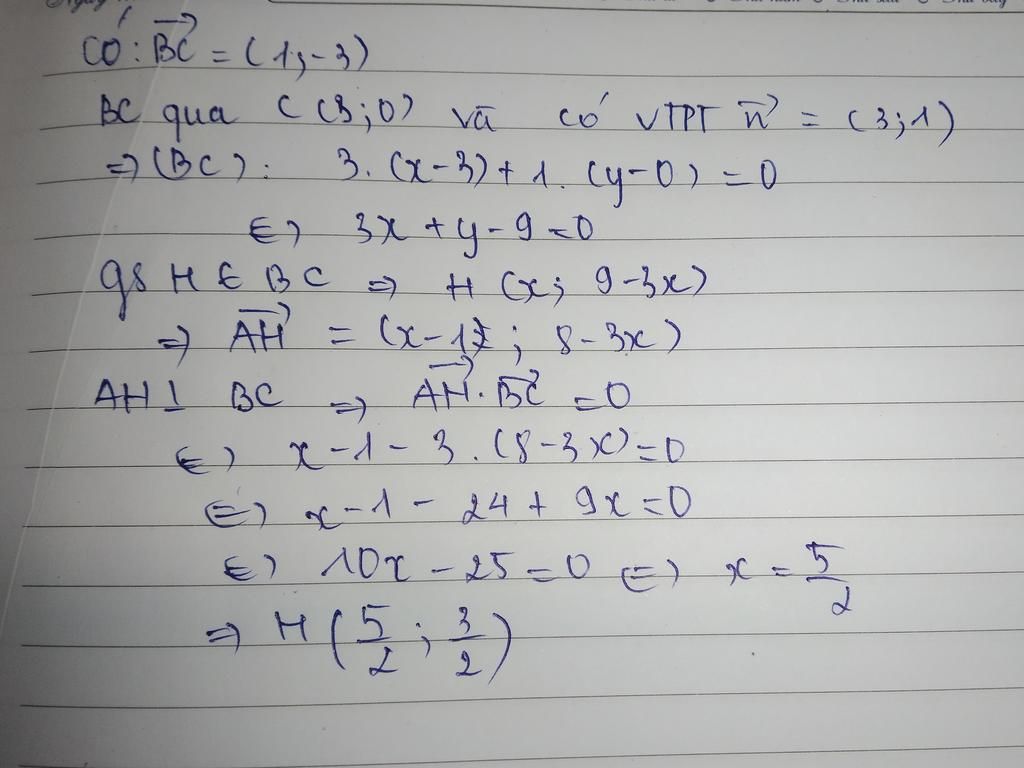 Có: $\overrightarrow{BC}$ = (1; -3)
BC qua C (3; 0) và có VTPT $\vec{n}$ = (3; 1)
⇒ (BC): 3. (x - 3) + 1. (y - 0) = 0
⇔ 3x + y - 9 = 0
gs H ∈ BC ⇒ H (x; 9 - 3x)
⇒ $\overrightarrow{AH}$ = (x - 1; 8 - 3x)
AH ⊥ BC ⇒ $\overrightarrow{AH}$ . $\overrightarrow{BC}$ = 0
⇔ x - 1 - 3 . (8 - 3x) = 0
⇔ x - 1 - 24 + 9x = 0
⇔ 10x - 25 = 0 ⇔ x = $\frac{5}{2}$
⇒ H ($\frac{5}{2}$; $\frac{3}{2}$)